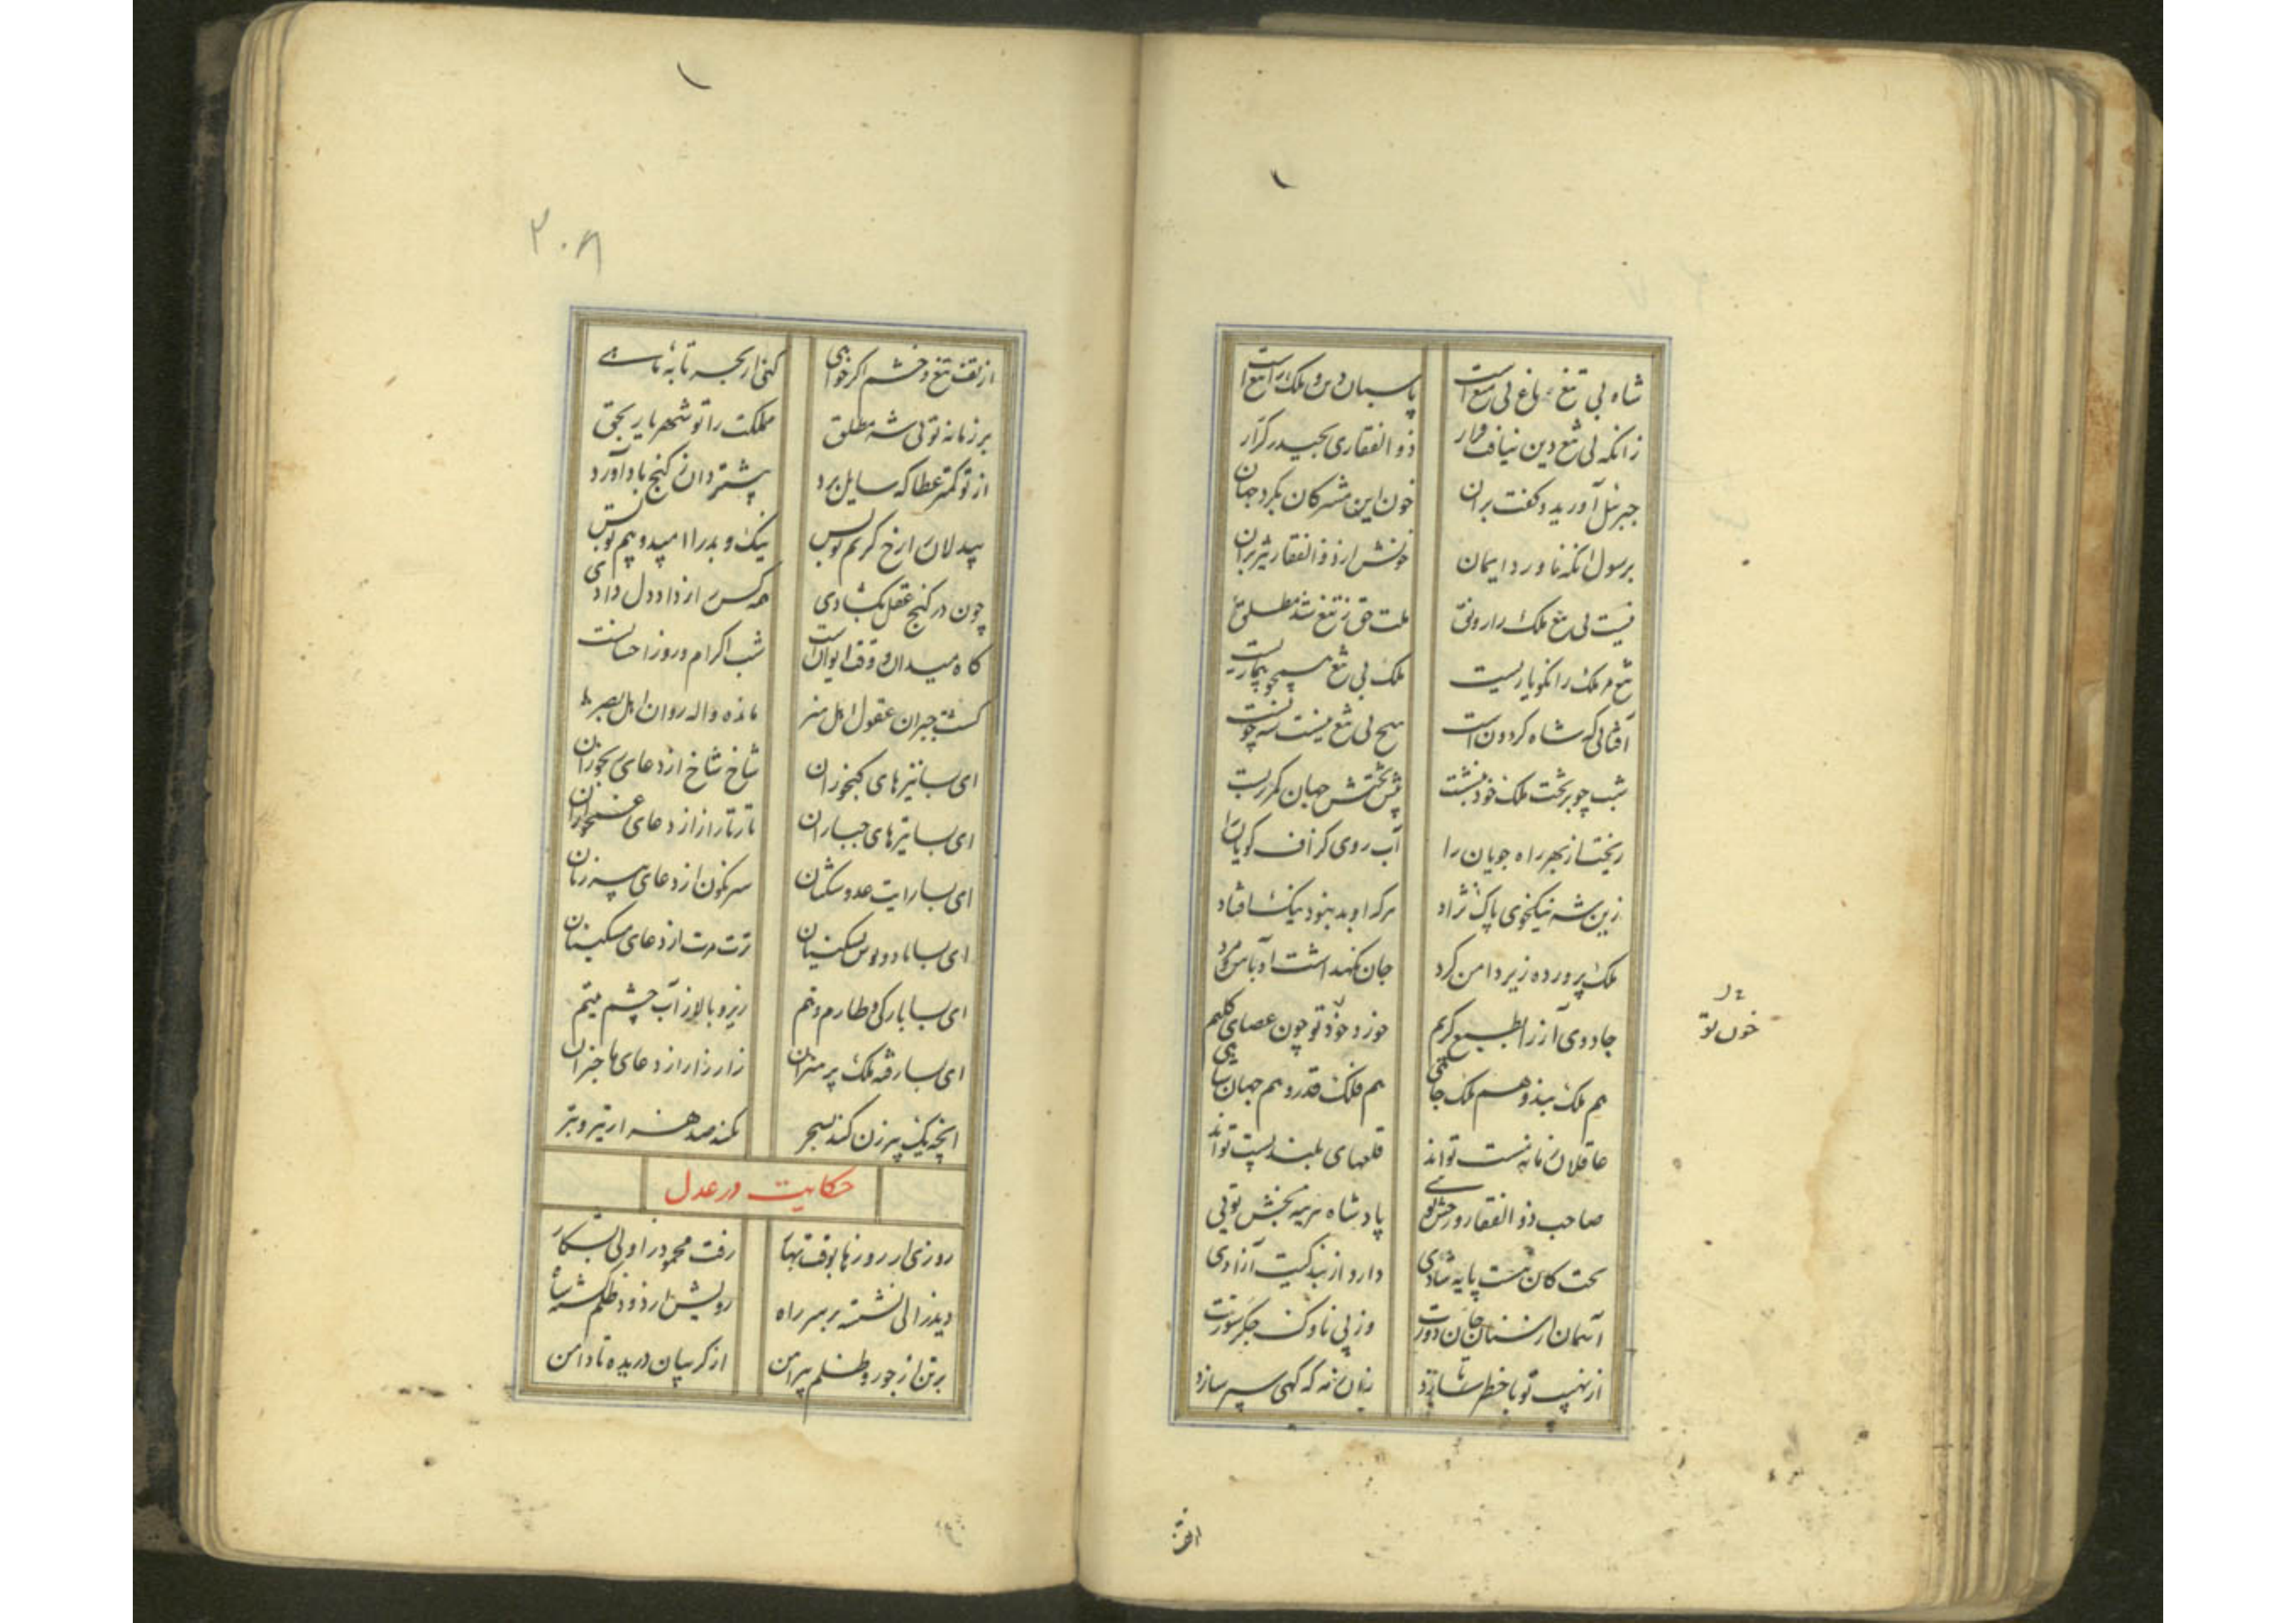 شاه بی تیغ باغ بی میغ است پاسبان دین و ملک را تیغ است
زانکه بی تیغ دین نیافت قرار ذوالفقاری بحیدر کرار
جبرئیل آورید و گفت بران خون این مشرکان بگرد جهان
بر رسول آنکه ناورد ایمان خونش از ذوالفقار تیز بران
نیست بی تیغ ملک را رونق ملت حق ز تیغ شد مطلق
تیغ مر ملک را نکو یاریست ملک بی تیغ همچو بیماریست
آفتابی که شاه گردونست هیچ بی تیغ نیست بین چونست
شب چو بر تخت ملک خود بنشست پیش تختش جهان کمر بربست
ریخت از بهر راه جویان را آب روی گزاف گویان را
زین شه نیکخوی پاک نژاد هرکه او بد نبود نیک افتاد
ملک پرورده زیر دامن کرد جان نگهداشت او با من کرد
جادوی آز را بطبع کریم خورد جود تو چون عصای کلیم
هم ملک بند و هم ملک جاهی هم فلک قدر و هم جهان شاهی
عاقلان زمانه مست تواند قلعهای بلند پست تواند
صاحب ذوالفقار و رخش تویی پادشاه هزیمه بخش تویی
تخت کان هست پایه شادی دارد از بندگیت آزادی
آسمان از سنان جان دوزت وز پی ناوک جگرسوزت
از نهیب تو با خطر سازد زان زمه گه گهی سپر سازد
خون تو
از تف
۲۰۸
از تف تیغ و خشم اگر خواهی کنی از بحر تابه ماهی
بر زمانه تویی شه مطلق مملکت را تو شهریار بحق
از تو کمتر عطا که سایل برد بیشتر دان ز گنج بادآورد
بیدلان را رخ کریم تو بس نیک و بد را امید و بیم تو بس
چون در گنج عقل بگشادی همه کس را ز داد دل دادی
گاه میدان و وقت ایوانت شب اکرام و روز احسانت
گشت حیران عقول اهل هنر مانده واله روان اهل بصر
ای بسا نیزهای گنجوران شاخ شاخ از دعای رنجوران
ای بسا تیرهای جباران تار تار از دعای غمخواران
ای بسا رایت عدو شکنان سرنگون از دعای پیرزنان
ای بسا باد و بوس تکینان ترت مرت از دعای مسکینان
ای بسا بارگی و طارم و تیم زیر و بالا ز آب چشم یتیم
ای بسا رفته ملک پر هنران زار زار از دعای عاجزان
آنچه یک پیرزن کند بسحر نکند صد هزار تیر و تبر
حکایت در عدل
روزی از روزها بوقت بهار رفت محمود زاولی بشکار
دید زالی نشسته بر سر راه رویش از دود ظلم گشته سیاه
بر تن از جور و ظلم پیراهن از گریبان دریده تا دامن